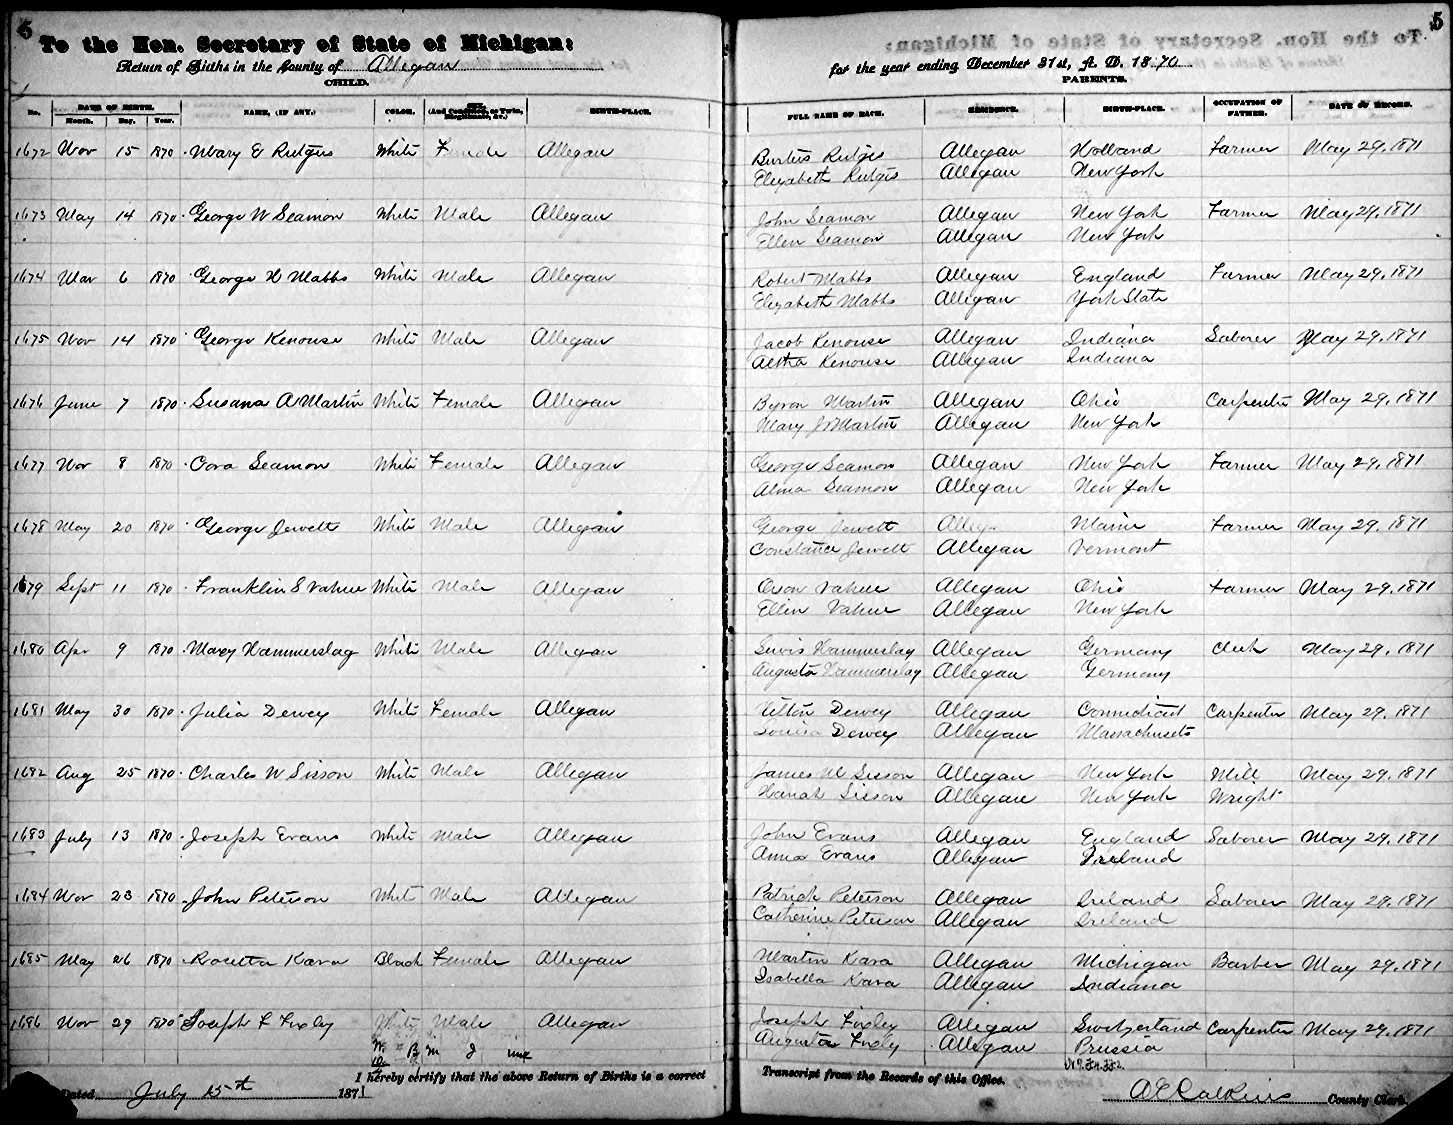 5
To the Hon. Secretary of State of Michigan:
Return of Births in the County of Allegan
CHILD.
No. DATE OF BIRTH. NAME, (IF ANY.) COLOR. SEX. (And Condition, as Twin, Illegitimate, &c.) BIRTH-PLACE.
Month. Day. Year.
1672 Nov 15 1870 Mary E Rutgis White Female Allegan
1673 May 14 1870 George W Seamon White Male Allegan
1674 Mar 6 1870 George H Mabbs White Male Allegan
1675 Nov 14 1870 George Kenouse White Male Allegan
1676 June 7 1870 Susana A Martin White Female Allegan
1677 Nov 8 1870 Cora Seamon White Female Allegan
1678 May 20 1870 George Jewett White Male Allegan
1679 Sept 11 1870 Franklin S Vahue White Male Allegan
1680 Apr 9 1870 Maxy Hammerslag White Male Allegan
1681 May 30 1870 Julia Dewey White Female Allegan
1682 Aug 25 1870 Charles W Sisson White Male Allegan
1683 July 13 1870 Joseph Evans White Male Allegan
1684 Nov 23 1870 John Peterson White Male Allegan
1685 May 26 1870 Rosetta Kara Black Female Allegan
1686 Nov 29 1870 Joseph F Fixley White Male Allegan
I hereby certify that the above Return of Births is a correct
Dated July 15th 1871
5
for the year ending December 31st, A. D. 1870
PARENTS.
FULL NAME OF EACH. RESIDENCE. BIRTH-PLACE. OCCUPATION OF FATHER. DATE OF RECORD.
Rutgis Allegan Holland Farmer May 29, 1871
Elizabeth Rutgis Allegan New York
John Seamon Allegan New York Farmer May 29, 1871
Ellen Seamon Allegan New York
Robert Mabbs Allegan England Farmer May 29, 1871
Elizabeth Mabbs Allegan York State
Jacob Kenouse Allegan Indiana Laborer May 29, 1871
Kenouse Allegan Indiana
Byron Martin Allegan Ohio Carpenter May 29, 1871
Mary J Martin Allegan New York
George Seamon Allegan New York Farmer May 29, 1871
Alma Seamon Allegan New York
George Jewett Alleg Maine Farmer May 29, 1871
Constance Jewett Allegan Vermont
Orson Vahue Allegan Ohio Farmer May 29, 1871
Ellen Vahue Allegan New York
Lewis Hammerslag Allegan Germany Clerk May 29, 1871
Augusta Hammerslag Allegan Germany
Dewey Allegan Connecticut Carpenter May 29, 1871
Louisa Dewey Allegan Massachusets
James M Sisson Allegan New York Mill May 29, 1871
Hanah Sisson Allegan New York Wright
John Evans Allegan England Laborer May 29, 1871
Anna Evans Allegan Ireland
Patrick Peterson Allegan Ireland Laborer May 29, 1871
Catherine Peterson Allegan Ireland
Martin Kara Allegan Michigan Barber May 29, 1871
Isabella Kara Allegan Indiana
Joseph Fixley Allegan Switzerland Carpenter May 29, 1871
Augusta Fixly Allegan Prussia
Transcript from the Records of this Office.
County Clerk.